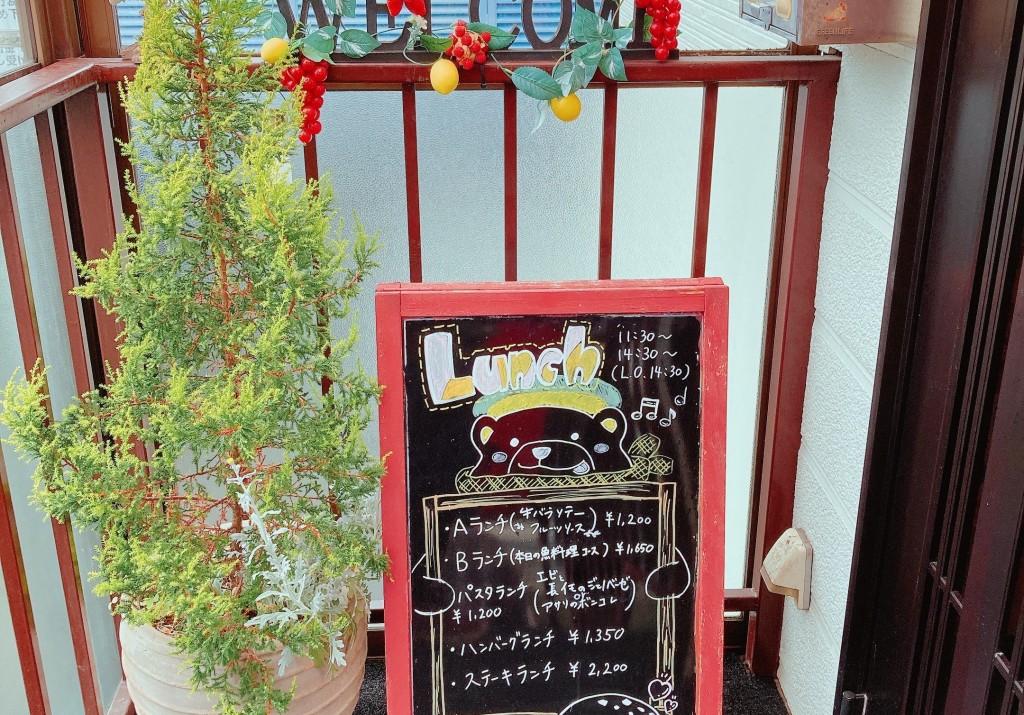 WELCOM
Lunch
11:30〜
14:30〜
(L.O.14:30)
・Aランチ(牛バラソテー
フルーツソース) ¥1,200
・Bランチ(本日の魚料理コース) ¥1,650
パスタランチ (エビと
長イモのジェノベーゼ
or
アサリのボンゴレ)
¥1,200
・ハンバーグランチ ¥1,350
・ステーキランチ ¥2,200
GREENLIFE